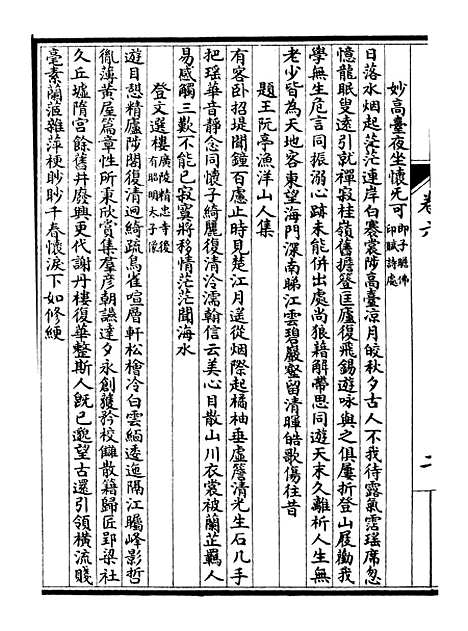 妙高臺夜坐懷旡可 即子瞻佛印賦詩處
日落水烟起茫茫連岸白褰裳陟高臺涼月皎秋夕古人不我待露氣霑瑤席忽
憶龍眠叟遠引就禪寂桂嶺舊擔簦匡廬復飛錫遊咏與之俱屢折登山屐勸我
學無生危言同振溺心跡未能併出處尚狼藉解帶思同遊天末久離析人生無
老少皆為天地客東望海門深南睇江雲碧巖壑留清暉皓歌傷往昔
題王阮亭漁洋山人集
有客卧招堤聞鐘百慮止時見楚江月遥從烟際起橘柚垂虛簷清光生石几手
把瑤華音靜念同懷子綺麗復清泠濡翰信云美心目散山川衣裳被蘭芷羈人
易感觸三歎不能已寂寞將移情茫茫聞海水
登文選樓 廣陵精忠寺後有昭明太子像
遊目憩精廬陟閣復清迥綺疏鳥雀喧層軒松檜冷白雲緬逶迤隔江矚峰影哲
胤薄黃屋篇章性所秉欣賞集羣彥朝讌達夕永創獲矜校讎散籍歸匠郢梁社
久丘墟隋宮餘舊井廢興更代謝丹樓復華整斯人旣已邈望古還引領橫流賤
毫素蘭茝雜萍梗眇眇千春懷淚下如修綆
卷六
二